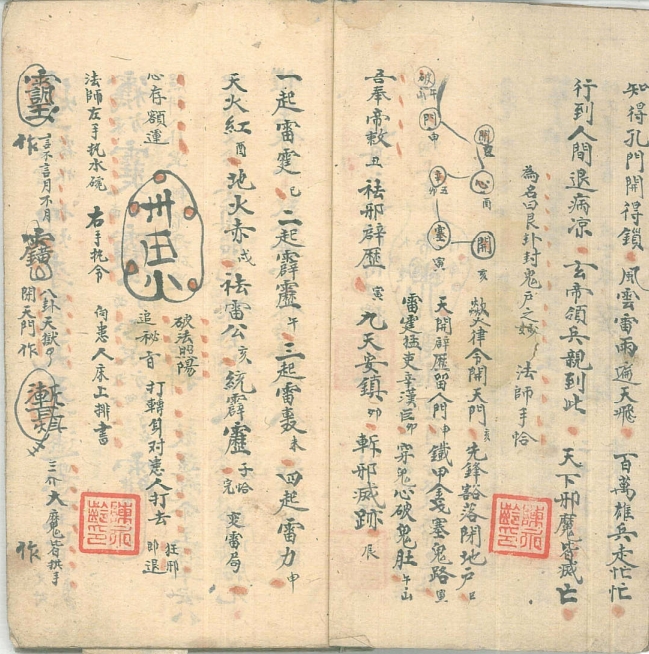 知得孔門開得鎖 風雲雷雨遍天飛 百萬雄兵走忙忙
行到人間退病凉 玄帝領兵親到此 天下邪魔皆滅亡
為名曰艮卦封鬼戶之 法師手恰
破 午
閉 申
辛 丑 卯
塞 寅
開 丑
心 酉
開 亥
大律令開天門 亥 先鋒豁落閉地戶 巳
天開辟歷留人門 申 鐵甲金 塞鬼路 寅
雷霆猛吏辛漢臣 卯 穿鬼心破鬼肚 午
吾奉帝敕 丑 祛邪辟歷 寅 九天安鎮 卯 斬邪滅跡 辰
一起雷霆 巳 二起霹靂 午 三起雷轟 未 四起雷力 申
天火紅 酉 地火赤 戌 祛雷公 亥 統霹靂 子 恰完 変雷局
破法的陽
心存額運 追秘旨 打轉身对患人打去 狂邪即退
法師左手托水碗 右手托令 向患人床上排書
作 言不言月不月 八卦天獄 開天門作 三介大魔皆拱手 作
陳永齡印
陳永齡印